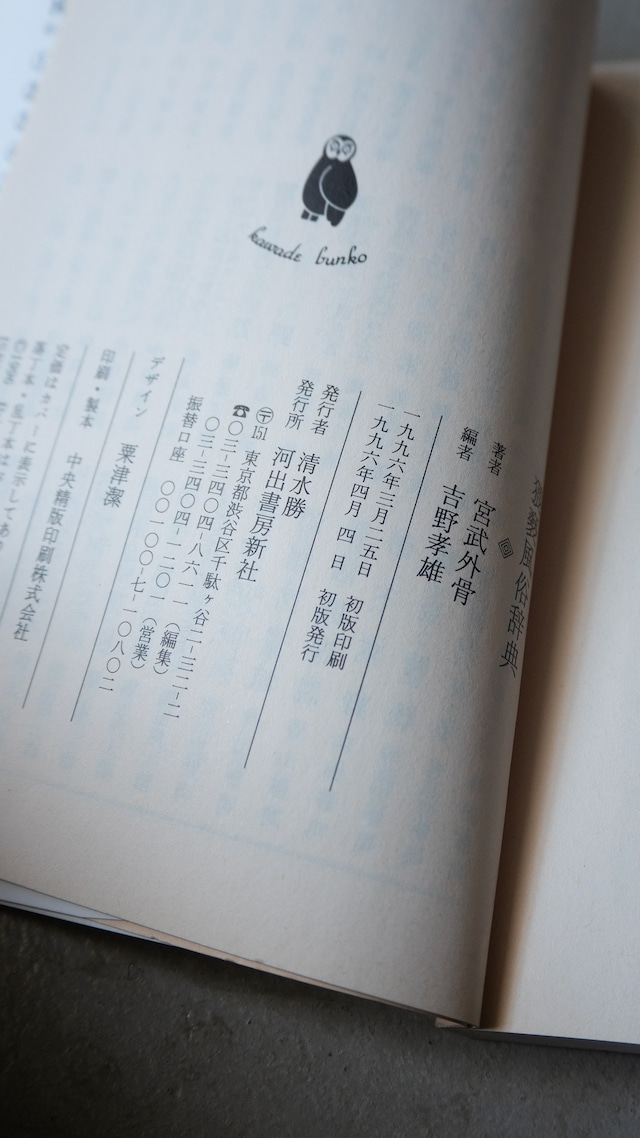 kawade bunko
猥褻風俗辞典
著者 宮武外骨
編者 吉野孝雄
一九九六年三月二五日 初版印刷
一九九六年四月 四 日 初版発行
発行者 清水勝
発行所 河出書房新社
〒151 東京都渋谷区千駄ヶ谷二-三二-二
☎〇三-三四〇四-八六一一(編集)
〇三-三四〇四-一二〇一(営業)
振替口座 〇〇一〇〇-七-一〇八〇二
デザイン 粟津潔
印刷・製本 中央精版印刷株式会社
定価はカバーに表示してあ
落丁本・乱丁本は